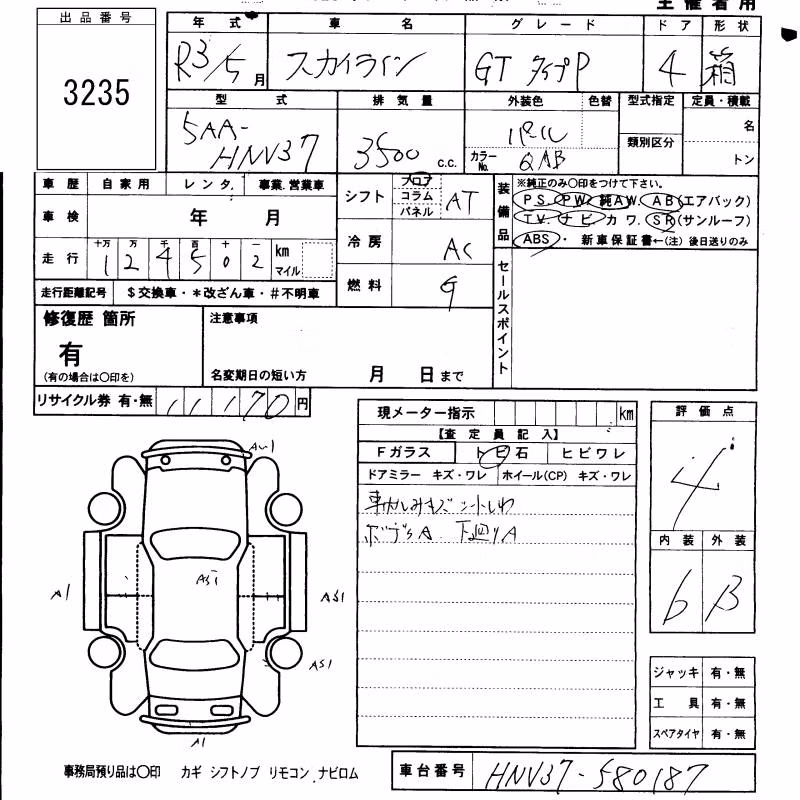 主催者用
出品番号
3235
年式 車名 グレード ドア 形状
R3/5月 スカイライン GT タイプP 4 箱
型式 排気量 外装色 色替 型式指定 定員・積載
5AA-HNV37 3500 c.c. パール 名
類別区分
カラーNo. QAB トン
車歴 自家用 レンタ. 事業.営業車
車検 年 月
走行 十万 万 千 百 十 一
1 2 4 5 0 2 km マイル
走行距離記号 $交換車・*改ざん車・#不明車
シフト フロア コラム パネル AT
冷房 AC
燃料 G
装備品 ※純正のみ○印をつけて下さい。
PS. PW 純AW. AB(エアバック)
TV. ナビ. カワ. SR(サンルーフ)
ABS・ 新車保証書←(注)後日送りのみ
セールスポイント
修復歴 箇所
有
(有の場合は○印を)
注意事項
名変期日の短い方 月 日まで
リサイクル券 有・無 11170円
現メーター指示 km
【査定員記入】
Fガラス トビ石 ヒビワレ
ドアミラー キズ・ワレ ホイール(CP) キズ・ワレ
シートしわ
ボディA 下廻りA
評価点
4
内装 外装
b B
A1
A1
AS1
A1
ジャッキ 有・無
工具 有・無
スペアタイヤ 有・無
事務局預り品は○印 カギ シフトノブ リモコン ナビロム
車台番号 HNV37-580187